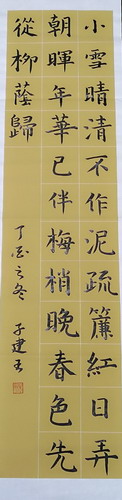 小雪晴清不作泥疏簾紅日弄
朝暉年華已伴梅梢晚春色先
從柳蔭歸
丁酉之冬 子建書